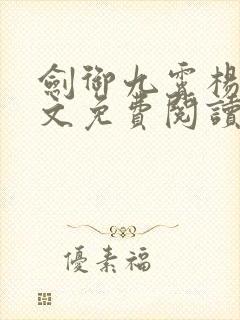 劍御九霄楊
文免費閱讀
優素福